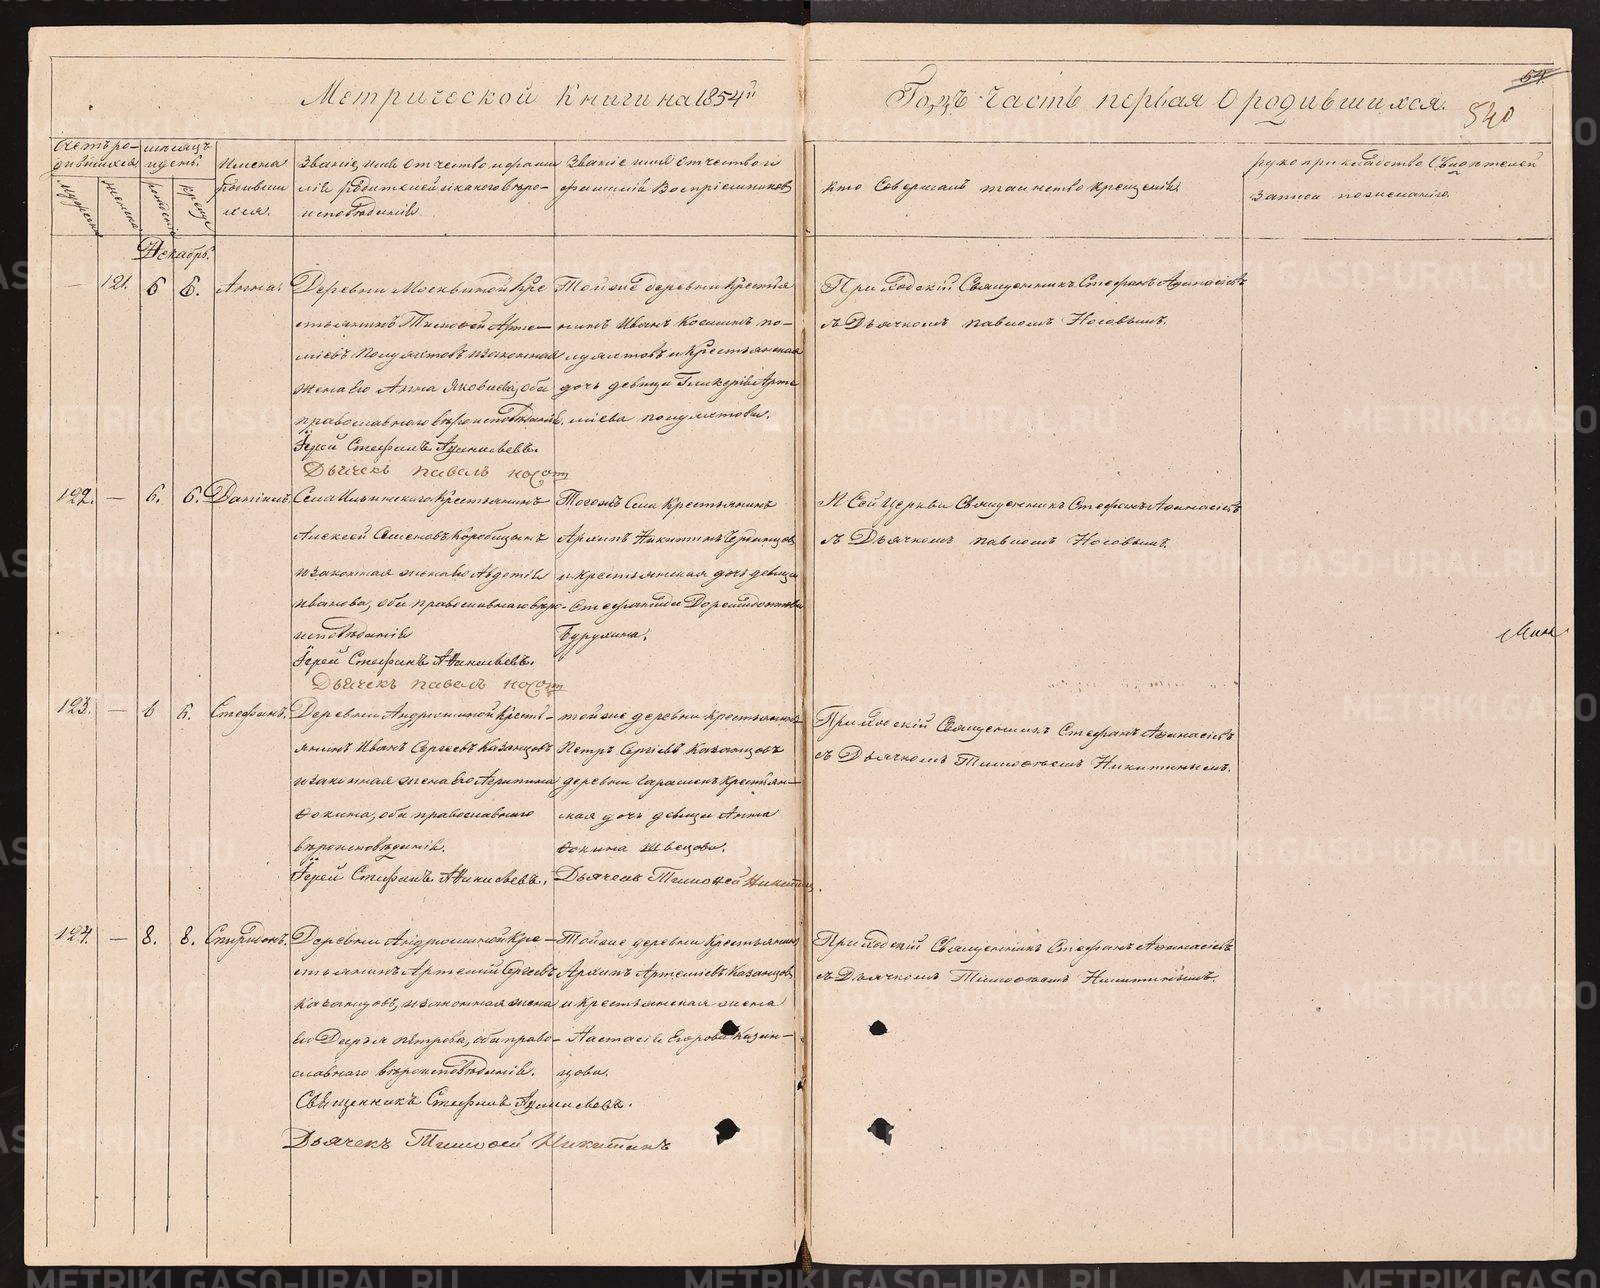 Метрической книги на 1854й
Годъ часть первая о родившихся.
54
540
Счетъ ро-
дившихся
мѣсяцъ
и день.
мужеска
женска
рожденія
крещенія
Имена
родивши
хся.
Званіе, имя отчество и фами
лія родителей и какого вѣро-
исповѣданія.
Званіе имя отчество и
фамилія Воспріемниковъ
кто совершалъ таинство крещенія
рукоприкладство свидѣтелей
записи по желанію.
Декабрь.
— 121. 6 6. Анна.
Деревни Москвиной Кре
стьянинъ Тимофей Арте-
міевъ Полуяхтовъ и законная
жена его Анна Яковлева, оба
православнаго вѣроисповѣданія.
Іерей Стефанъ Афанасьевъ.
Дьячекъ павелъ носот
Той же деревни Крестья
нинъ Иванъ Козминъ по-
луяхтовъ и Крестьянская
дочь девица Гликерія Арте
міева полуяхтова.
Приходскій Священникъ Стефанъ Афанасіевъ
съ Дьячкомъ павломъ Носовымъ.
122. — 6. 6. Даніилъ.
Села Ильинскаго Крестьянинъ
Алексей Семеновъ Коробицынъ
и законная жена его Авдотія
Иванова, оба православнаго вѣро-
исповѣданія
Іерей Стефанъ Афанасьевъ.
Дьячекъ павелъ носот
Тогожъ Села Крестьянинъ
Архипъ Никитинъ
и крестьянская дочь девица
Стефанида
Бурухина.
И Сей Церкви Священникъ Стефанъ Афанасіевъ
съ Дьячкомъ павломъ Носовымъ.
123. — 6 6. Стефанъ.
Деревни Андрюшиной Кресть-
янинъ Иванъ Сергеевъ Казанцовъ
и законная жена его Агрипина
Фокина, оба православнаго
вѣроисповѣданія.
Іерей Стефанъ Афанасьевъ.
той же деревни Крестьянинъ
Петръ Сергіевъ Казанцовъ
деревни Крестьян-
ская дочь девица Анна
Фокина Швецова.
Дьячекъ Тимофей Никитинъ
Приходскій Священникъ Стефанъ Афанасіевъ
съ Дьячкомъ Тимофеемъ Никитинымъ.
124. — 8. 8. Спиридонъ.
Деревни Андрюшиной Кре-
стьянинъ Артемій Сергеевъ
Казанцовъ, и законная жена
его Дарья петрова, оба право-
славнаго вѣроисповѣданія.
Священникъ Стефанъ Афанасьевъ.
Дьячекъ Тимофей Никитинъ
Той же деревни Крестьянинъ
Архипъ Артеміевъ Казанцовъ
и Крестьянская жена
Настасія Егорова Казан-
цова.
Приходскій Священникъ Стефанъ Афанасіевъ
съ Дьячкомъ Тимофеемъ Никитинымъ.
METRIKI.GASO-URAL.RU